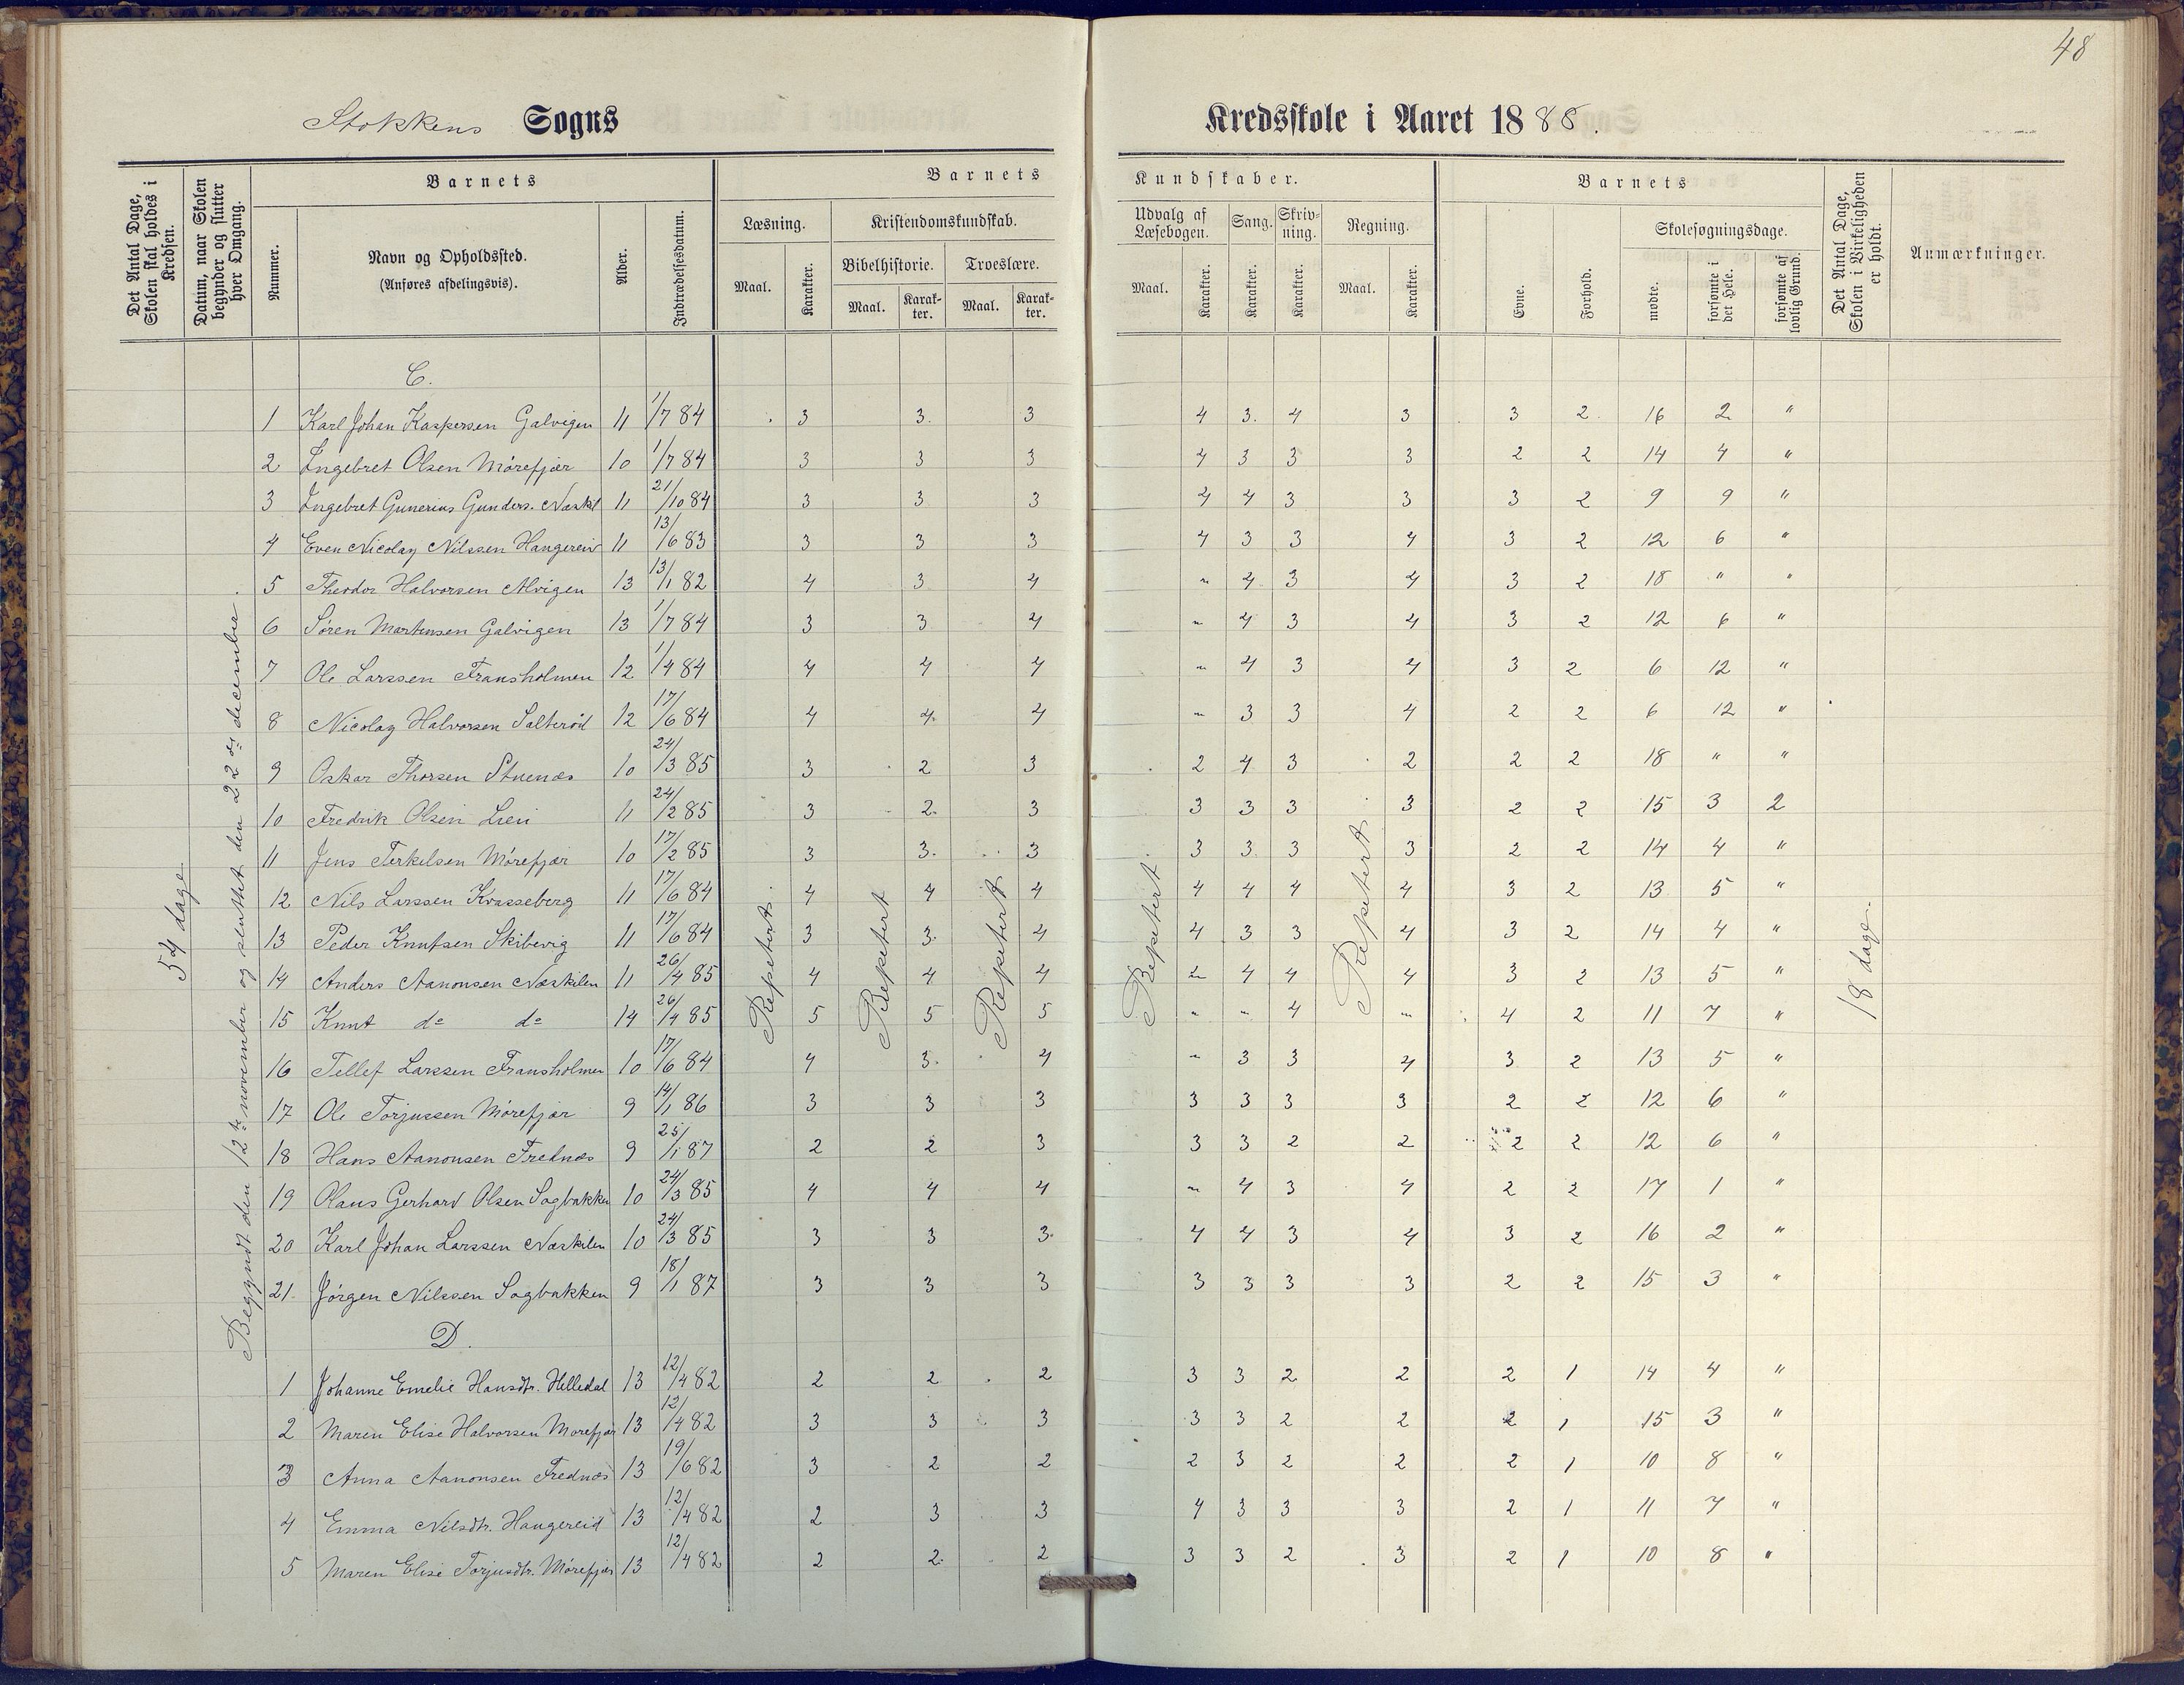 48
Stokkens Sogns Kredsskole i Aaret 1888.
Det Antal Dage, Skolen skal holdes i Kredsen.
Datum, naar Skolen begynder og slutter hver Omgang.
Barnets
Nummer.
Navn og Opholdssted.
(Anføres afdelingsvis).
Alder.
Indtrædelsesdatum.
Barnets Kundskaber.
Læsning.
Maal.
Karakter.
Kristendomskundskab.
Bibelhistorie.
Maal.
Karakter.
Troeslære.
Maal.
Karakter.
Udvalg af Læsebogen.
Maal.
Karakter.
Sang.
Karakter.
Skrivning.
Karakter.
Regning.
Maal.
Karakter.
Barnets
Evne.
Forhold.
Skolesøgningsdage.
mødte.
forsømte i det Hele.
forsømte af lovlig Grund.
Det Antal Dage, Skolen i Virkeligheden er holdt.
Anmærkninger.
54 dage
Begyndt den 12te november og sluttet den 22de december.
Repetert.
Repetert
Repetert
Repetert.
Repetert.
18 dage.
C.
1 Karl Johan Kaspersen Galvigen 11 1/7 84 3 3. 3 4 3. 4 3 3 2. 16 2 "
2 Ingebret Olsen Mörefjær 10 1/7 84 3 3 3 4 3 3 3 2 2 14 4 "
3 Ingebret Gunerius Gunders. Næskil 11 21/10 84 3 3 3 4 4 3 3 3 2 9 9 "
4 Even Nicolay Nilssen Hangereid 11 13/6 83 3 3 3 4 3 3 4 3 2 12 6 "
5 Theodor Halvorsen Alvigen 13 13/1 82 4 3 4 " 4 3 4 3 2 18 " "
6 Sören Martensen Galvigen 13 1/7 84 3 3 4 " 4 3 4 3 2 12 6 "
7 Ole Larssen Fransholmen 12 1/4 84 4 4 4 " 4 3 4 3 2 6 12 "
8 Nicolay Halvorsen Salteröd 12 17/6 84 4 4. 4 " 3 3 4 2 2 6 12 "
9 Oskar Thorsen Stuenæs 10 24/3 85 3 2 3 2 4 3 2 2 2 18 " "
10 Fredrik Olsen Lien 11 24/2 85 3 2. 3 3 3 3 3 2 2 15 3 2
11 Jens Terkelsen Mörefjær 10 17/2 85 3 3. 3 3 3 3 3 2 2 14 4 "
12 Nils Larssen Krasseberg 11 17/6 84 4 4 4 4 4 4 4 3 2 13 5 "
13 Peder Knutsen Skibevig 11 17/6 84 3 3. 4 4 3 3 4 3 2 14 4 "
14 Anders Aanonsen Næskilen 11 26/4 85 4 4 4 " 4 4 4 3 2 13 5 "
15 Knut do do 14 26/4 85 5 5 5 " " 4 " 4 2 11 7 "
16 Tellef Larssen Fransholmen 10 17/6 84 4 3. 4 " 3 3 4 3 2 13 5 "
17 Ole Torjussen Mörefjær 9 14/1 86 3 3 3 3 3 3 3 2 2 12 6 "
18 Hans Aanonsen Frednæs 9 25/1 87 2 2 3 3 3 2 2 2 2 12 6 "
19 Olaus Gerhard Olsen Sagbakken 10 24/3 85 4 4 4 " 4 3 4 2 2 17 1 "
20 Karl Johan Larssen Næskilen 10 24/3 85 3 3 3. 4 4 3 4 3 2 16 2 "
21. Jörgen Nilssen Sagbakken 9 18/1 87 3 3 3 3 3 3 3 2 2 15 3 "
D.
1 Johanne Emelie Hansdtr. Helledal 13 12/4 82 2 2 2 3 3 2 2 2 1 14 4 "
2 Maren Elise Halvorsen Morefjær 13 12/4 82 3 3 3 3 3 2 2 2 1 15 3 "
3 Anna Aanonsen Frednæs 13 19/6 82 3 2 2 2 3 2 2 2 1 10 8 "
4 Emma Nilsdtr. Hangereid 13 12/4 82 2 3 3 4 3 3 3 2 1 11 7 "
5 Maren Elise Torjusdtr. Mörefjær 13 12/4 82 2 2. 2 3 3 2 3 2 1 10 8 "